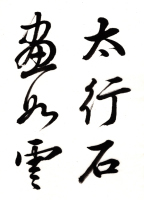 太行石
畫如雲